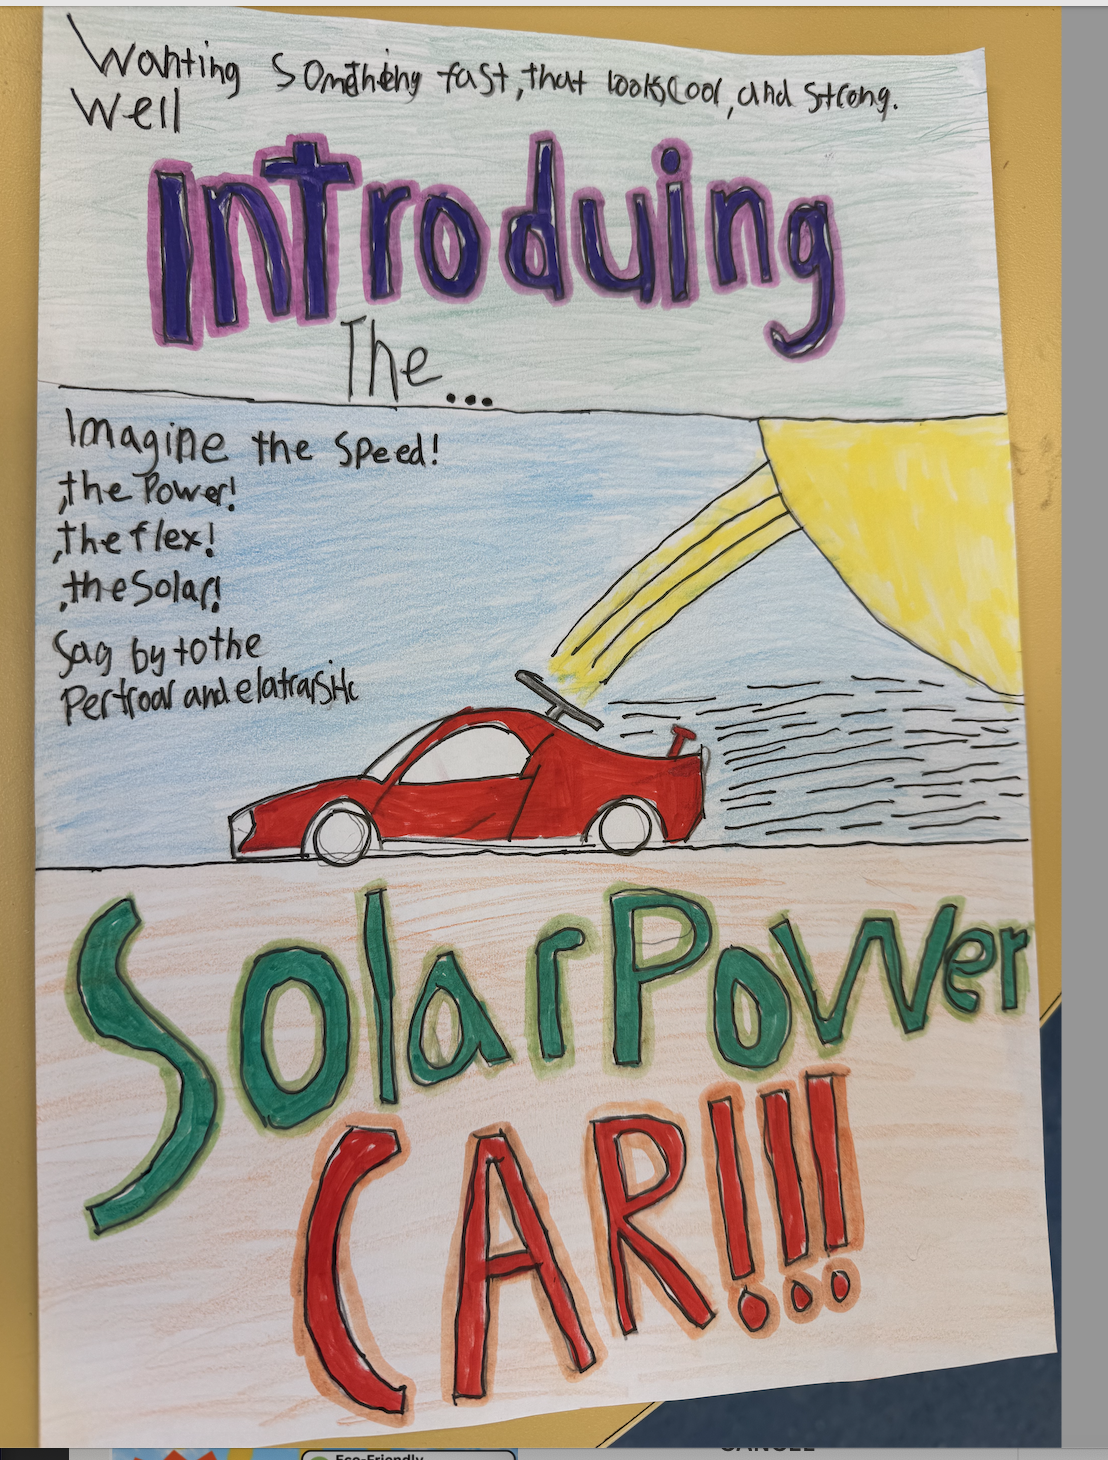 Wanting Something fast, that looks Cool, and strong.
Well
Introduing
The...
Imagine the speed!
,the Power!
,the flex!
,the Solar!
Sag by to the
Pertroal and
Solar Power
CAR!!!
Eco-Friendly
CANCEL